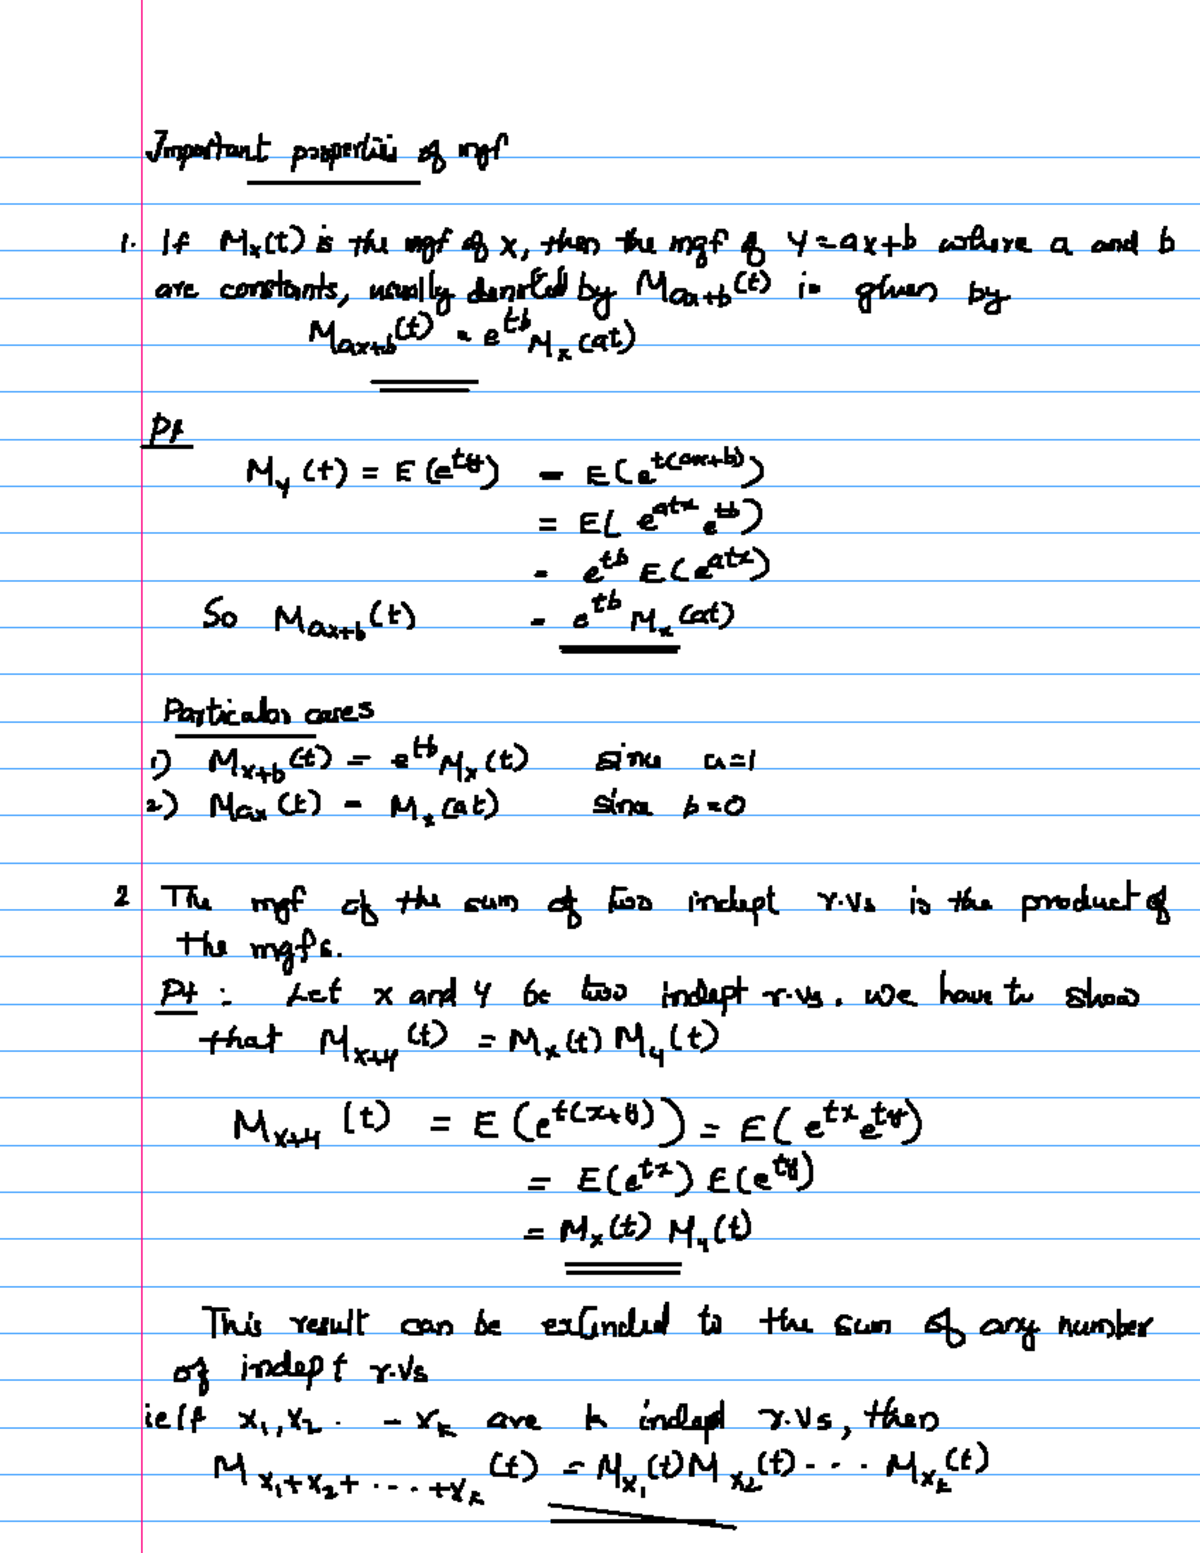 Important properties of mgf
1. If Mx(t) is the mgf of x, then the mgf of y = ax+b where a and b
are constants, usually denoted by M_{ax+b}(t) is given by
M_{ax+b}(t) = e^{tb} M_x(at)
Pf
M_y(t) = E(e^{ty}) = E(e^{t(ax+b)})
= E( e^{atx} e^{tb})
= e^{tb} E(e^{atx})
So M_{ax+b}(t) = e^{tb} M_x(at)
Particular cases
1) M_{x+b}(t) = e^{tb} M_x(t) since a=1
2) M_{ax}(t) = M_x(at) since b=0
2 The mgf of the sum of two indept r.vs is the product of
the mgfs.
Pf : Let x and y be two indept r.vs. we have to show
that M_{x+y}(t) = M_x(t) M_y(t)
M_{x+y}(t) = E(e^{t(x+y)}) = E(e^{tx} e^{ty})
= E(e^{tx}) E(e^{ty})
= M_x(t) M_y(t)
This result can be extended to the sum of any number
of indept r.vs
ie If x_1, x_2 . - x_k are k indept r.vs, then
M_{x_1+x_2+ ... +x_k}(t) = M_{x_1}(t) M_{x_2}(t) - . . M_{x_k}(t)